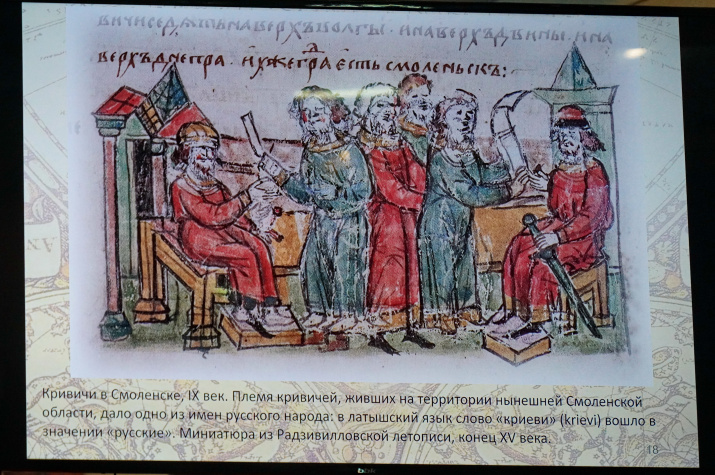 вичиседѧтьнаверхъволгы · инаверхъдвины · ина
верхъднепра · ихжеграестьсмоленьскъ:
Кривичи в Смоленске, IX век. Племя кривичей, живших на территории нынешней Смоленской
области, дало одно из имен русского народа: в латышский язык слово «криеви» (krievi) вошло в
значении «русские». Миниатюра из Радзивилловской летописи, конец XV века.
18